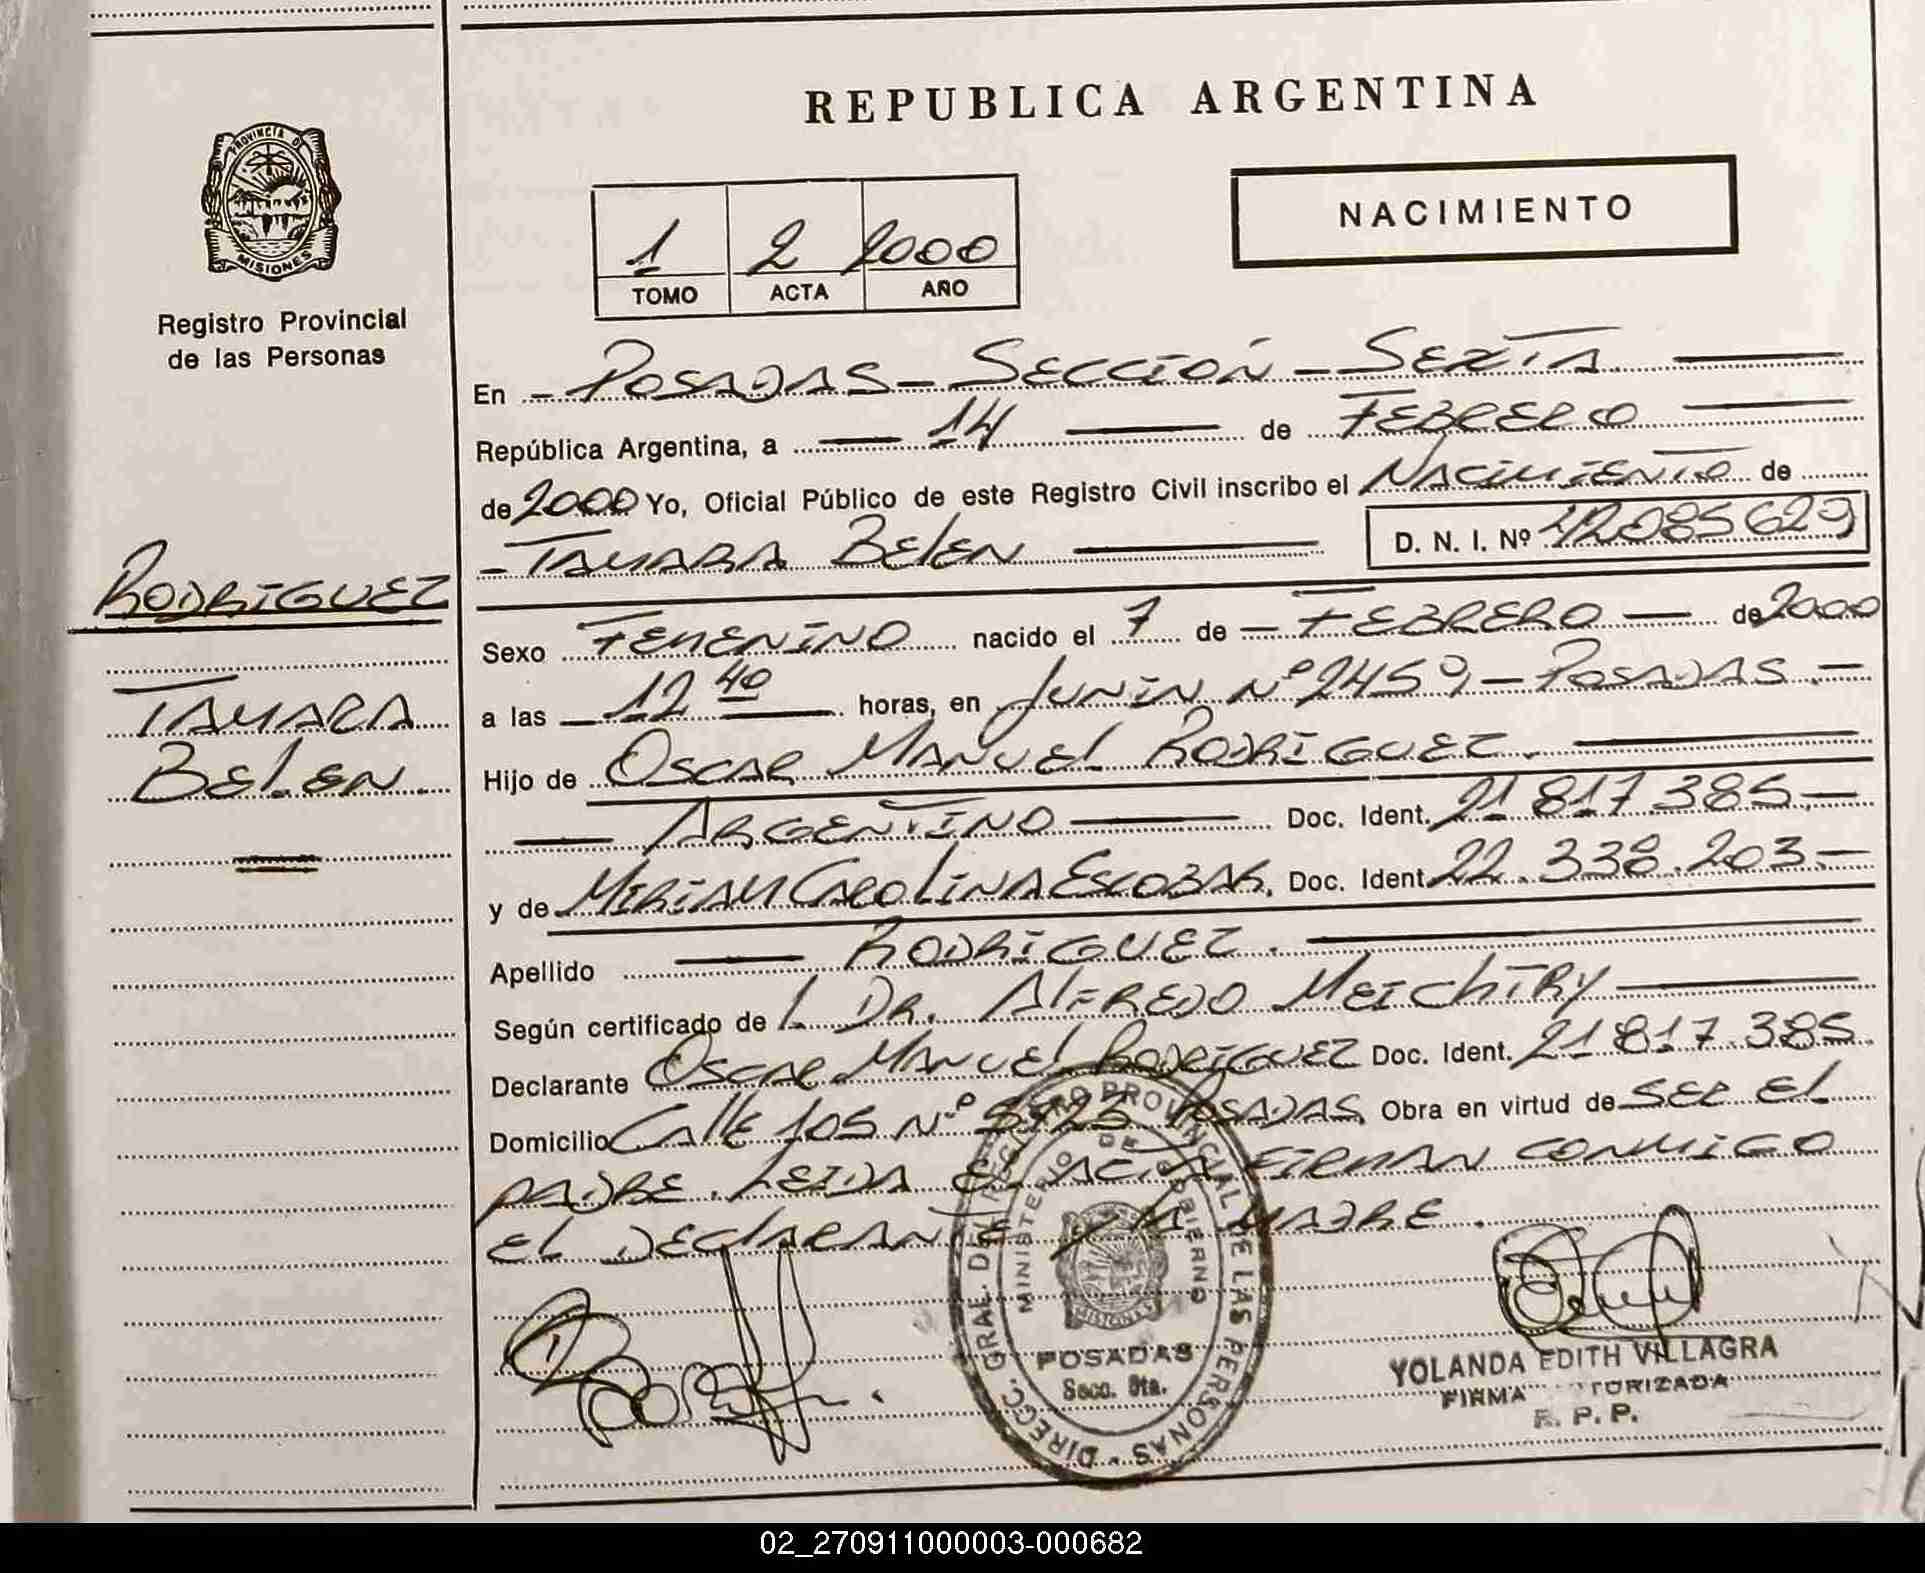 REPUBLICA ARGENTINA
PROVINCIA DE
MISIONES
Registro Provincial
de las Personas
1 2 2000
TOMO ACTA AÑO
NACIMIENTO
En - POSADAS - SECCIÓN - SEXTA
República Argentina, a 14 de FEBRERO
de 2000 Yo, Oficial Público de este Registro Civil inscribo el NACIMIENTO de
- TAMARA BELEN D. N. I. Nº 42.085629
RODRIGUEZ
TAMARA
BELEN
Sexo FEMENINO nacido el 7 de - FEBRERO de 2000
a las 12 40 horas, en JUNIN Nº 2459 - POSADAS. -
Hijo de OSCAR MANUEL RODRIGUEZ.
ARGENTINO Doc. Ident. 21.817.385. -
y de MIRIAM CAROLINA ESCOBAR, Doc. Ident. 22.338.203. -
Apellido RODRIGUEZ.
Según certificado de DR. ALFREDO MEICHTRY
Declarante OSCAR MANUEL RODRIGUEZ Doc. Ident. 21.817.385.
Domicilio CALLE 105 Nº POSADAS, Obra en virtud de SER EL
PADRE. LEIDA EL ACTA FIRMAN CONMIGO
EL DECLARANTE Y LA MADRE.
DIRECC. GRAL. DEL REGISTRO PROVINCIAL DE LAS PERSONAS
MINISTERIO DE GOBIERNO
MISIONES
POSADAS
Secc. 6ta.
YOLANDA EDITH VILLAGRA
FIRMA TORIZADA
R. P. P.
02_270911000003-000682